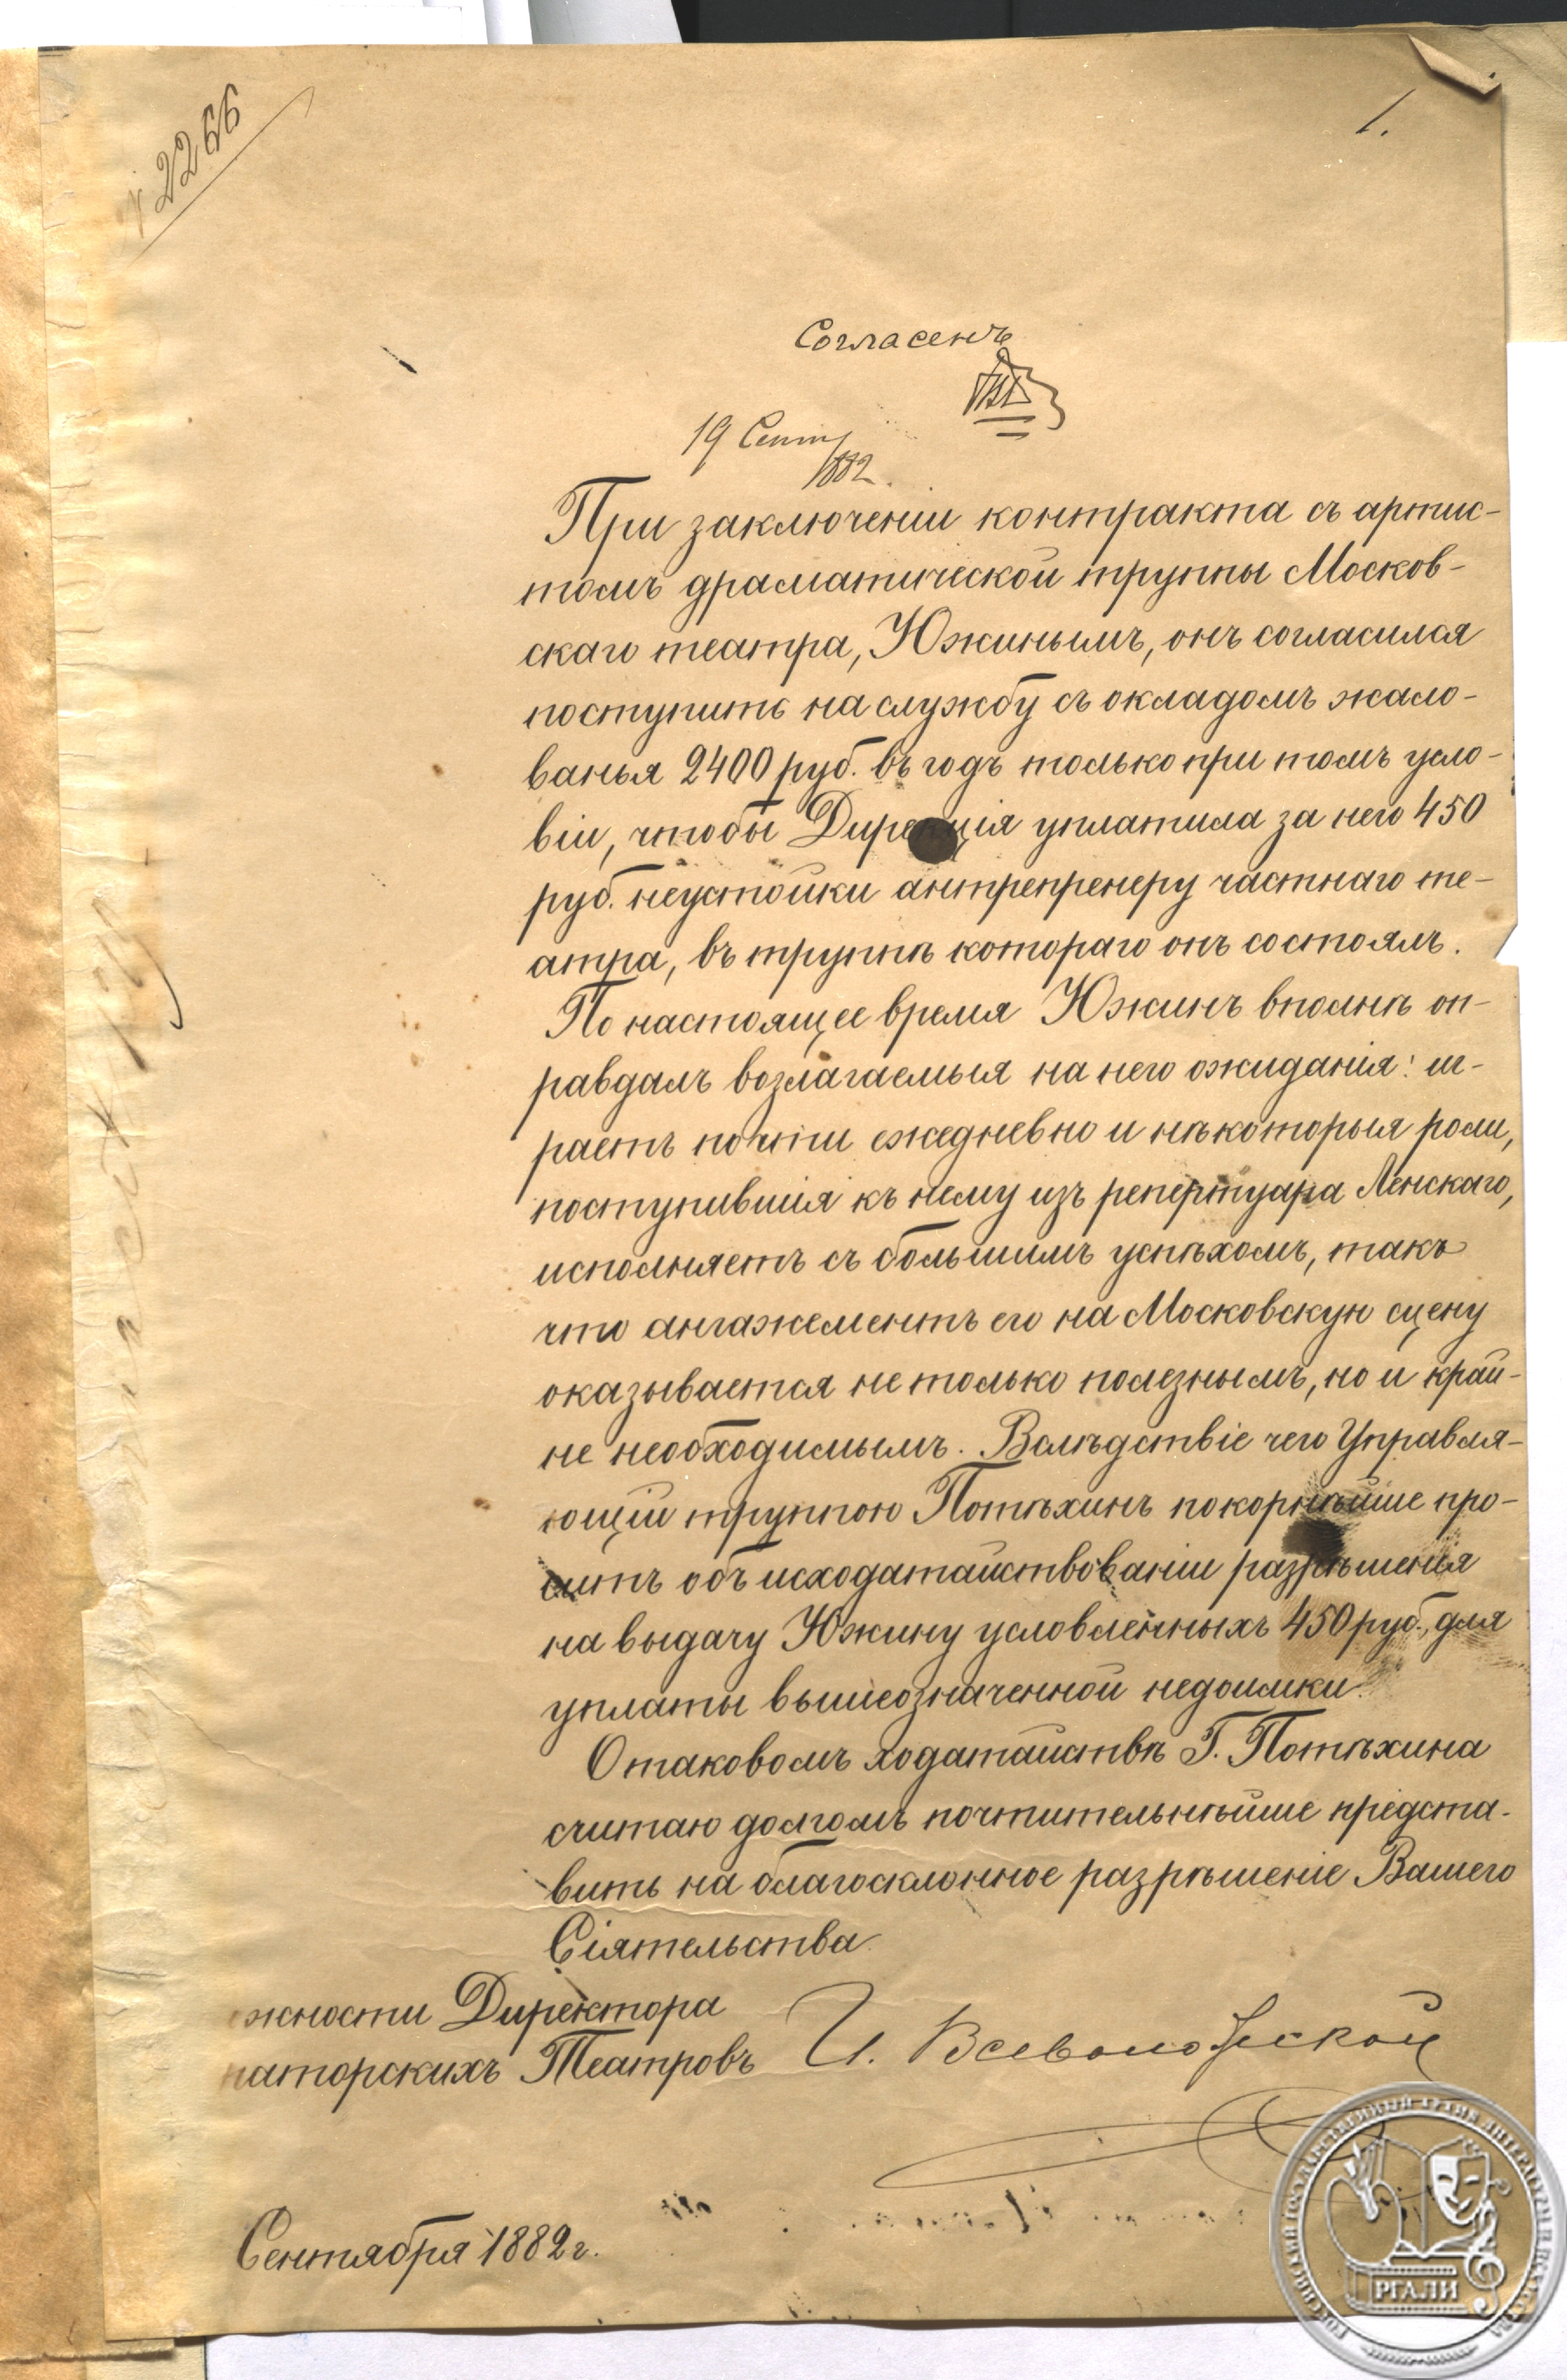 2266
1.
Согласенъ
19 Сент
1882.
При заключеніи контракта съ артис-
томъ драматической труппы Москов-
скаго театра, Южинымъ, онъ согласился
поступить на службу съ окладомъ жало-
ванья 2400 руб. въ годъ только при томъ усло-
віи, чтобы Дирекція уплатила за него 450
руб. неустойки антрепренеру частнаго те-
атра, въ труппѣ котораго онъ состоялъ.
По настоящее время Южинъ вполнѣ оп-
равдалъ возлагаемыя на него ожиданія: иг-
раетъ почти ежедневно и нѣкоторыя роли,
поступившія къ нему изъ репертуара Ленскаго,
исполняетъ съ большимъ успѣхомъ, такъ
что ангажементъ его на Московскую сцену
оказывается не только полезнымъ, но и край-
не необходимымъ. Вслѣдствіе чего Управля-
ющій труппою Потѣхинъ покорнѣйше про-
ситъ объ исходатайствованіи разрѣшенія
на выдачу Южину условленныхъ 450 руб., для
уплаты вышеозначенной недоимки.
О таковомъ ходатайствѣ Г. Потѣхина
считаю долгомъ почтительнѣйше предста-
вить на благосклонное разрѣшеніе Вашего
Сіятельства
жности Директора
раторскихъ Театровъ И. Всеволожской
Сентября 1882 г.
РОССИЙСКИЙ ГОСУДАРСТВЕННЫЙ АРХИВ ЛИТЕРАТУРЫ И ИСКУССТВА
РГАЛИ